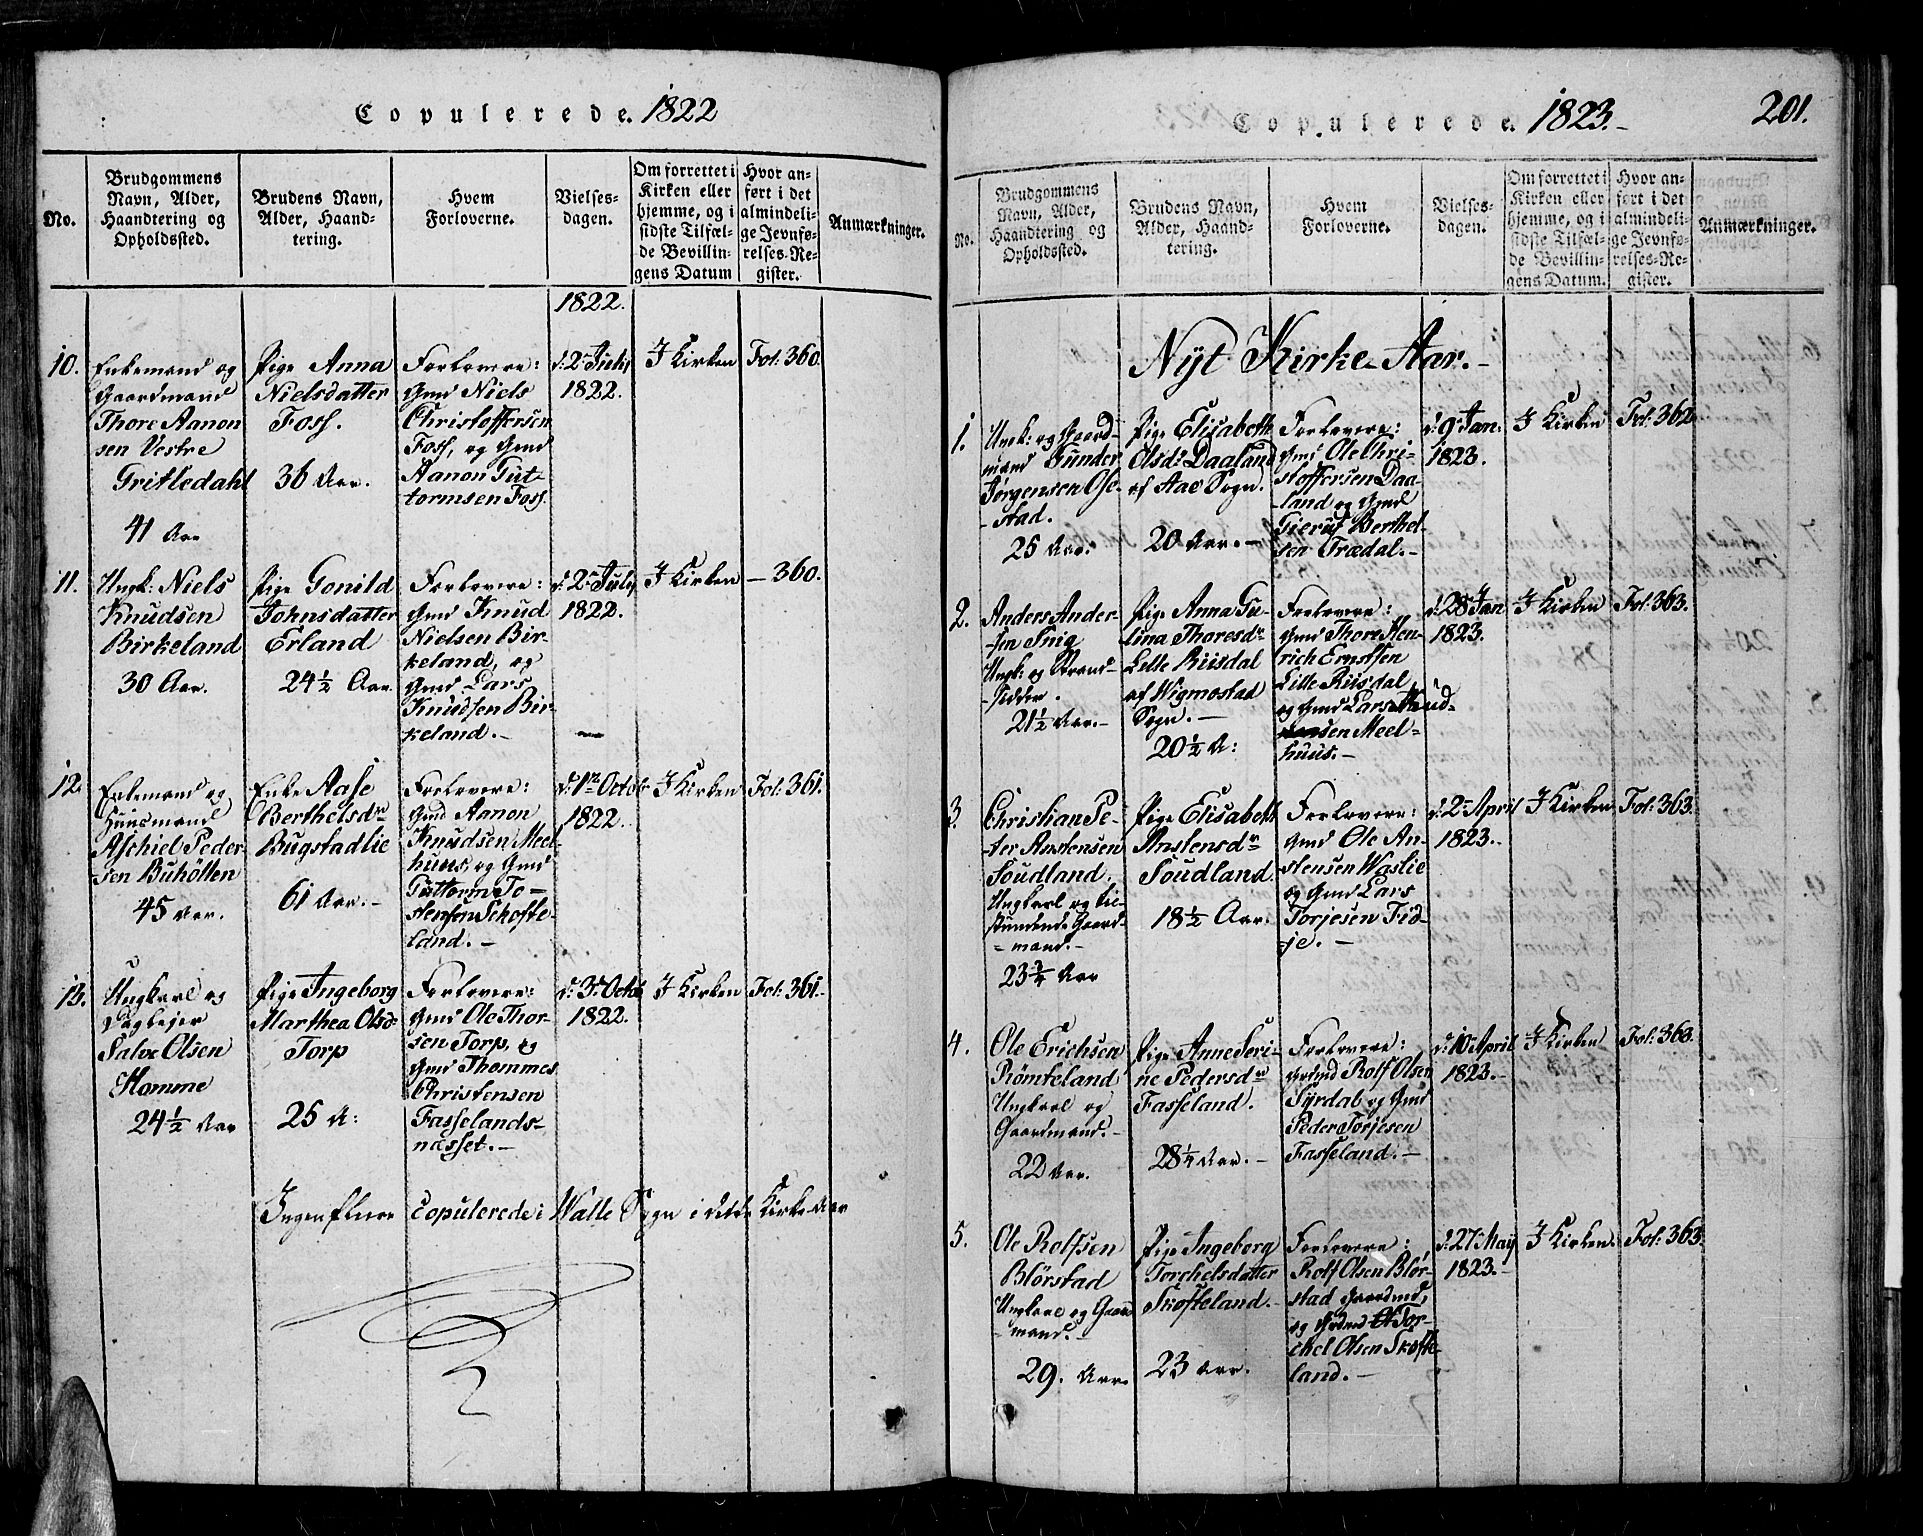 Copulerede. 1822
No.
Brudgommens
Navn, Alder,
Haandtering og
Opholdssted.
Brudens Navn,
Alder, Haand-
tering.
Hvem
Forloverne.
Vielses-
dagen.
Om forrettet i
Kirken eller
hjemme, og i
sidste Tilfæl-
de Bevillin-
gens Datum
Hvor an-
ført i det
almindeli-
ge Jevnfø-
relses-Re-
gister.
Anmærkninger.
1822.
10.
Enkemand og
Gaardmand
Thore Aanon
sen Vestre
Gritledahl
41 Aar
Pige Anna
Nielsdatter
Foss.
36 Aar.
Forlovere:
Gmd Niels
Christoffersen
Foss, og Gmd
Aanon Gut-
tormsen Foss.
d: 2 July
1822.
I Kirken
Fol: 360.
11.
Ungk: Niels
Knudsen
Birkeland
30 Aar.
Pige Gonild
Johnsdatter
Erland
24½ Aar.
Forlovere:
Gmd Knud
Nielsen Bir-
keland, og
Gmd Lars
Knudsen Bir-
keland.-
d: 2 July
1822.
I Kirken
- 360.
12.
Enkemand og
Huusmand
Aschiel Peder
sen Buhölten
45 Aar.
Enke Aase
Berthelsdr
Bugstadlie
61 Aar.-
Forlovere:
Gmd Aanon
Knudsen Meel
huus, og Gmd
Guttorm To-
stensen Schofte-
land.-
d: 1 Octob
1822.
I Kirken
Fol: 361.
13.
Ungkarl og
Dagleier
Salve Olsen
Homme
24½ Aar
Pige Ingeborg
Marthea Olsd:
Torp
25 A:
Forlovere:
Gmd Ole Thor-
sen Torp, og
Gmd Thommes
Christensen
Fasselands-
næsset.-
d: 3 Octob
1822.
I Kirken
Fol: 361.
Ingen flere copulerede i Walle Sogn i dette Kirke Aar
Copulerede. 1823.-
201.
No.
Brudgommens
Navn, Alder,
Haandtering og
Opholdssted.
Brudens Navn,
Alder, Haand-
tering.
Hvem
Forloverne.
Vielses-
dagen.
Om forrettet i
Kirken eller
hjemme, og i
sidste Tilfæl-
de Bevillin-
gens Datum.
Hvor an-
ført i det
almindeli-
ge Jevnfø-
relses-Re-
gister.
Anmærkninger.
Nyt Kirke-Aar.-
1.
Ungk: og Gaard-
mand Gunder
Jørgensen Ose-
stad.
25 Aar.
Pige Elisabeth
Olsd: Daaland
af Aae Sogn.
20 Aar.-
Forlovere:
Gmd Ole Chri-
stoffersen Daa-
land og Gmd
Gierut Berthel-
sen Trædal.-
d: 9 Jan:
1823.
I Kirken
Fol: 362
2.
Anders Ander-
sen Snig
Ungk: og Strand-
sidder.
21½ Aar.-
Pige Anna Gu-
lina Thoresdr
Lille Riisdal
af Wigmostad
Sogn.-
20½ A:
Forlovere:
Gmd Thore Hen-
rich Ernstsen
Lille Riisdal
og Gmd Lars Knud-
sen Meel-
huus.-
d: 28 Jan
1823.
I Kirken
Fol: 363.
3.
Christian Pe-
ter Anstensen
Soudland,
Ungkarl og til-
stundende Gaard-
mand.-
23¾ Aar
Pige Elisabeth
Anstensdr
Soudland
18½ Aar.
Forlovere:
Gmd Ole An-
stensen Waslie
og Gmd Lars
Torjesen Fid-
je.-
d: 2 April
1823.
I Kirken
Fol: 363.
4.
Ole Erichsen
Römteland
Ungkarl og
Gaardmand.-
22 Aar.
Pige Anne Seri-
ne Pedersdr
Fasseland.
28¼ Aar.-
Forlovere:
Gmd Rolf Olsen
Syrdal og Gmd
Peder Torjesen
Fasseland.-
d: 10 April
1823.-
I Kirken
Fol: 363.
5.
Ole Rolfsen
Blörstad
Ungkarl og Gaard
mand.-
29. Aar.
Pige Ingeborg
Torchelsdatter
Skofteland.-
23 Aar.
Forlovere:
Rolf Olsen Blör-
stad Gaardmd,
og Gmd Tor-
chel Olsen Skofte-
land.-
d: 27 May
1823.-
I Kirken.
Fol: 363.